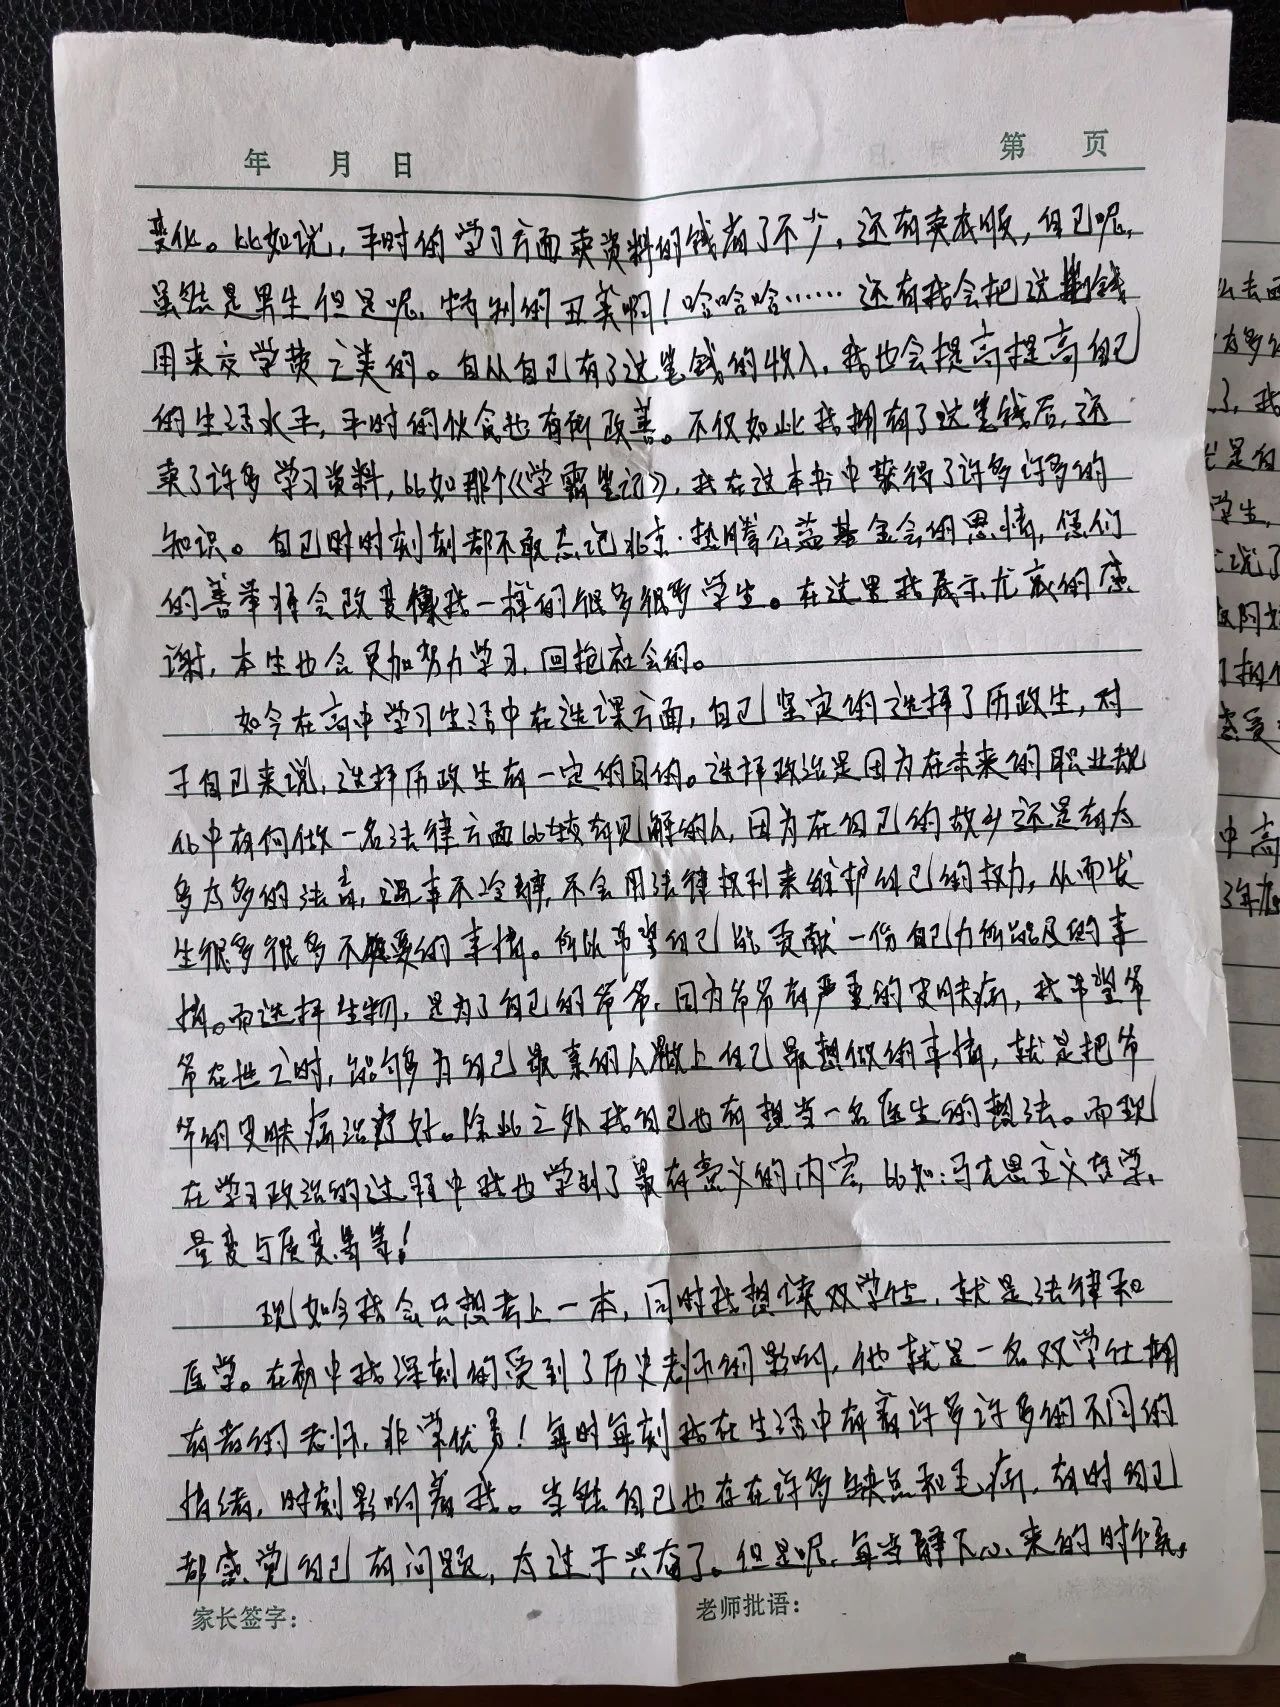 年 月 日 第 页
变化。比如说，平时的学习方面卖资料的钱有了不少，还有卖衣服，自己呢，
虽然是男生但是呢，特别的丑美啊！哈哈哈……还有我会把这笔钱
用来交学费之类的。自从自己有了这笔钱的收入，我也会提高提高自己
的生活水平，平时的伙食也有所改善。不仅如此我拥有了这笔钱后，还
卖了许多学习资料，比如那个《学霸笔记》，我在这本书中获得了许多许多的
知识。自己时时刻刻都不敢忘记北京·慈腾公益基金会的恩情，您们
的善举将会改变像我一样的很多很多学生。在这里我表示尤衷的感
谢，本生也会更加努力学习，回抱社会的。
如今在高中学习生活中在选课方面，自己坚定的选择了历政生，对
于自己来说，选择历政生有一定的目的。选择政治是因为在未来的职业规
化中有向做一名法律方面比较有见解的人，因为在自己的故乡还是有太
多太多的法盲，遇事不冷静，不会用法律权利来维护自己的权力，从而发
生很多很多不想要的事情。所以希望自己能贡献一份自己力所能及的事
情。而选择生物，是为了自己的爷爷，因为爷爷有严重的皮肤病，我希望爷
爷在世之时，能够多为自己最亲的人做上自己最想做的事情，就是把爷
爷的皮肤病治疗好。除此之外我自己也有想当一名医生的想法。而现
在学习政治的过程中我也学到了最有意义的内容，比如：马克思主义哲学、
量变与质变等等！
现如今我会只想考上一本，同时我想读双学仕，就是法律和
医学。在初中我深刻的受到了历史老师的影响，他就是一名双学仕拥
有者的老师，非常优秀！每时每刻我在生活中有着许多许多的不同的
情绪，时刻影响着我。当然自己也存在许多缺点和毛病，有时自己
都感觉自己有问题，太过于兴奋了。但是呢，每当静下心来的时候，
家长签字： 老师批语：